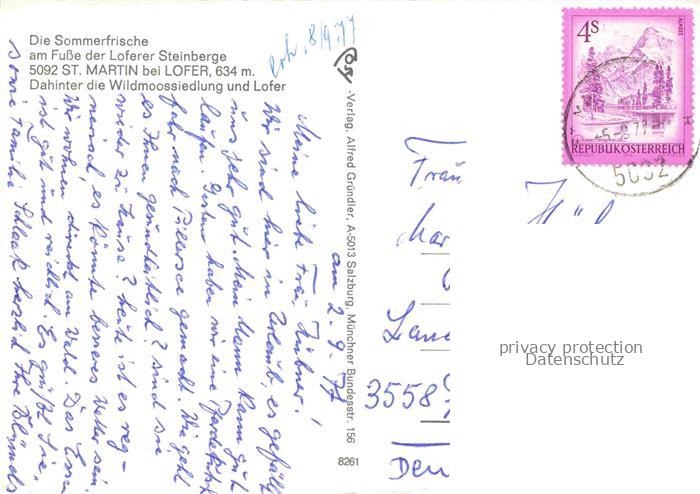 Die Sommerfrische
am Fuße der Loferer Steinberge
5092 ST. MARTIN bei LOFER, 634 m.
Dahinter die Wildmoossiedlung und Lofer
erh. 8/9.77
-Verlag, Alfred Gründler, A-5013 Salzburg, Münchner Bundesstr. 156
8261
am 2.9.77
Meine liebe Frau Hübner!
Wir sind hier in Urlaub, es gefällt
uns sehr gut. Mein Mann kann gut
laufen. Gestern haben wir eine Pferdekutsch
fahrt nach Pillersee gemacht. Wie geht
es Ihnen gesundheitlich? Sind sie
wieder zu Hause? Heute ist es reg-
nerisch, es könnte besseres Wetter sein.
Wir wohnen direkt am Wald. Das Essen
ist gut und reichlich. Es grüßt Sie,
sowie Familie Schleak herzlich Ihre
4S
ALMSEE
REPUBLIK ÖSTERREICH
5092
Frau
Hüb
Mar
3558
privacy protection
Datenschutz